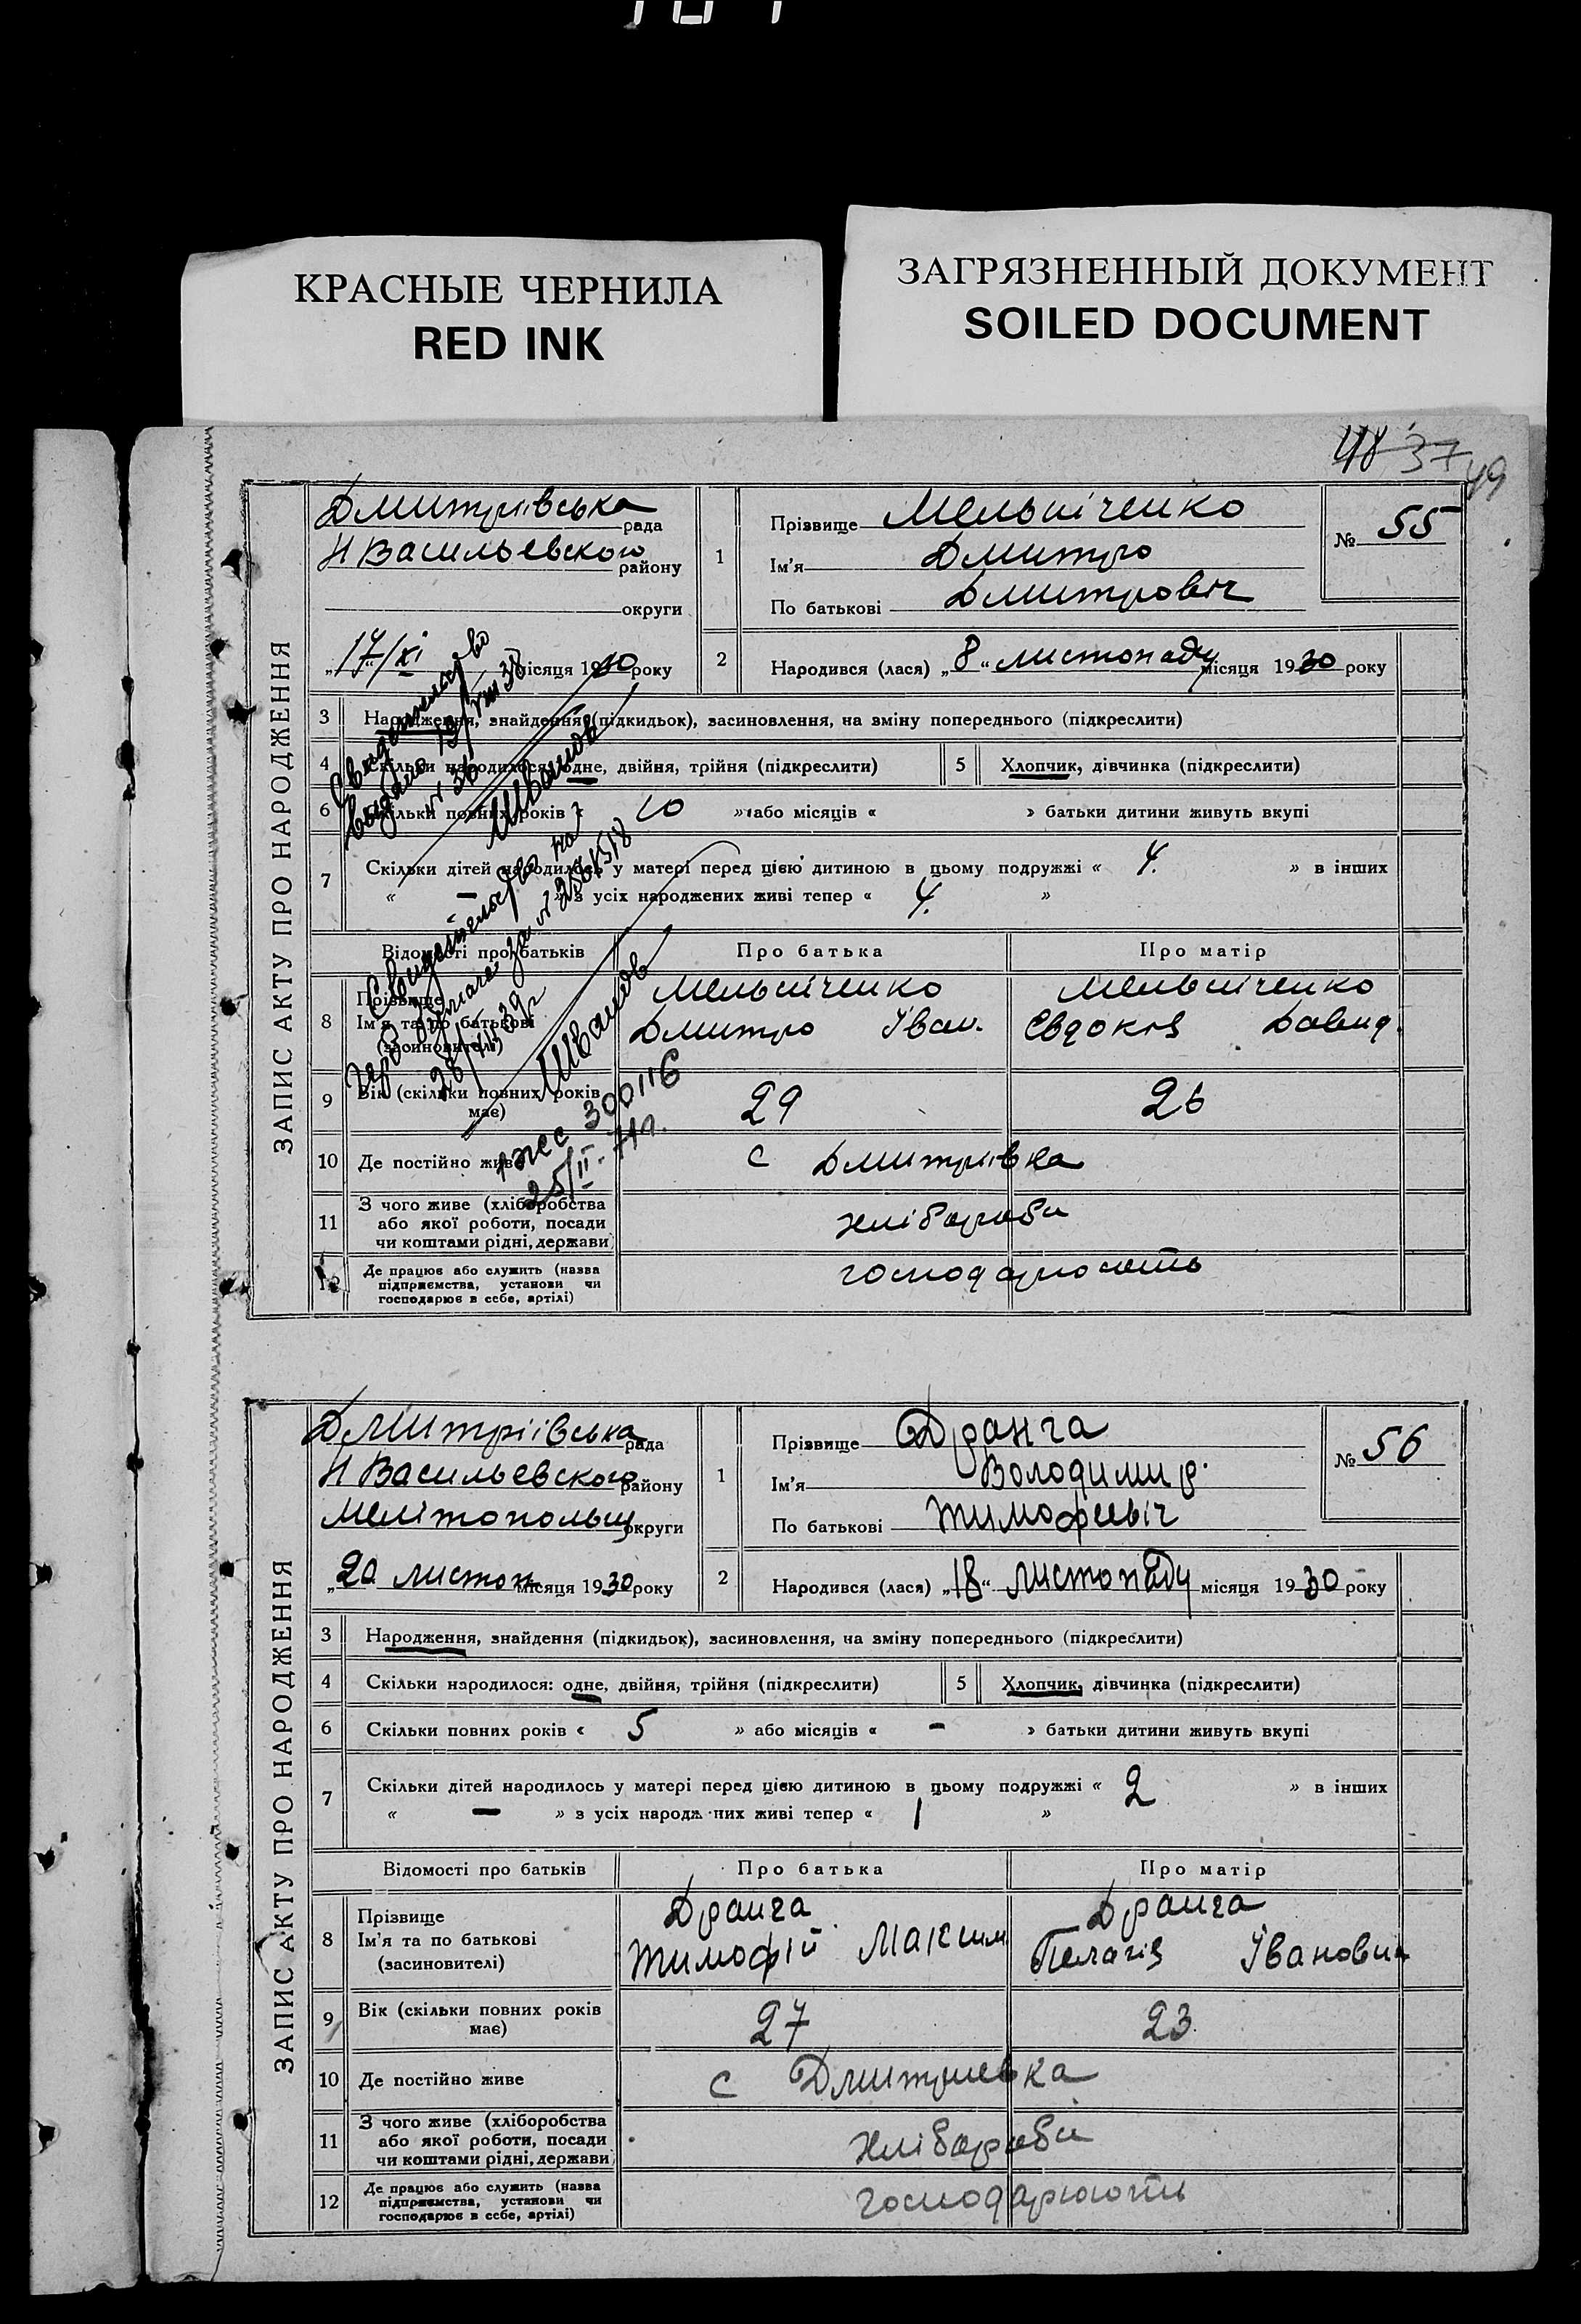 КРАСНЫЕ ЧЕРНИЛА
RED INK
ЗАГРЯЗНЕННЫЙ ДОКУМЕНТ
SOILED DOCUMENT
48 37 49
ЗАПИС АКТУ ПРО НАРОДЖЕННЯ
Дмитріівська рада
Н Васильевского району
округи
„17/XI місяця 1930 року
1 Прізвище Мельніченко
Ім'я Дмитро
По батькові Дмитровіч
№ 55
2 Народився (лася) „8“ листопаду місяця 1930 року
3 Народження, знайдення (підкидьок), засиновлення, на зміну попереднього (підкреслити)
4 Скільки народилося: одне, двійня, трійня (підкреслити) 5 Хлопчик, дівчинка (підкреслити)
6 Скільки повних років « 10 » або місяців « » батьки дитини живуть вкупі
7 Скільки дітей народилось у матері перед цією дитиною в цьому подружжі « 4. » в інших
« — » з усіх народжених живі тепер « 4. »
Свидетельство
выдано 19/VIII 38
№ 36
Иванов
Свидетельство на
за № 256518
28/VII 39г
Иванов
300116
25/II-71г.
Відомості про батьків Про батька Про матір
8 Прізвище
Ім'я та по батькові
(засиновителі)
Мельніченко Мельніченко
Дмитро Іван. Євдокія Давид.
9 Вік (скільки повних років має) 29 26
10 Де постійно живе с Дмитріівка
11 З чого живе (хліборобства
або якої роботи, посади
чи коштами рідні, держави)
хлібороби
12 Де працює або служить (назва
підприємства, установи чи
господарює в себе, артілі)
господарюють
ЗАПИС АКТУ ПРО НАРОДЖЕННЯ
Дмитріівська рада
Н Васильевского району
Мелітопольщ округи
„20 листоп місяця 1930 року
1 Прізвище Дранга
Ім'я Володимир.
По батькові Тимофеевіч
№ 56
2 Народився (лася) „18“ листопаду місяця 1930 року
3 Народження, знайдення (підкидьок), засиновлення, на зміну попереднього (підкреслити)
4 Скільки народилося: одне, двійня, трійня (підкреслити) 5 Хлопчик, дівчинка (підкреслити)
6 Скільки повних років « 5 » або місяців « – » батьки дитини живуть вкупі
7 Скільки дітей народилось у матері перед цією дитиною в цьому подружжі « 2 » в інших
« — » з усіх народж них живі тепер « 1 »
Відомості про батьків Про батька Про матір
8 Прізвище
Ім'я та по батькові
(засиновителі)
Дранга Дранга
Тимофій Максим Пелагія Івановна
9 Вік (скільки повних років має) 27 23
10 Де постійно живе с Дмитриевка
11 З чого живе (хліборобства
або якої роботи, посади
чи коштами рідні, держави)
хлібороби
12 Де працює або служить (назва
підприємства, установи чи
господарює в себе, артілі)
господарюють